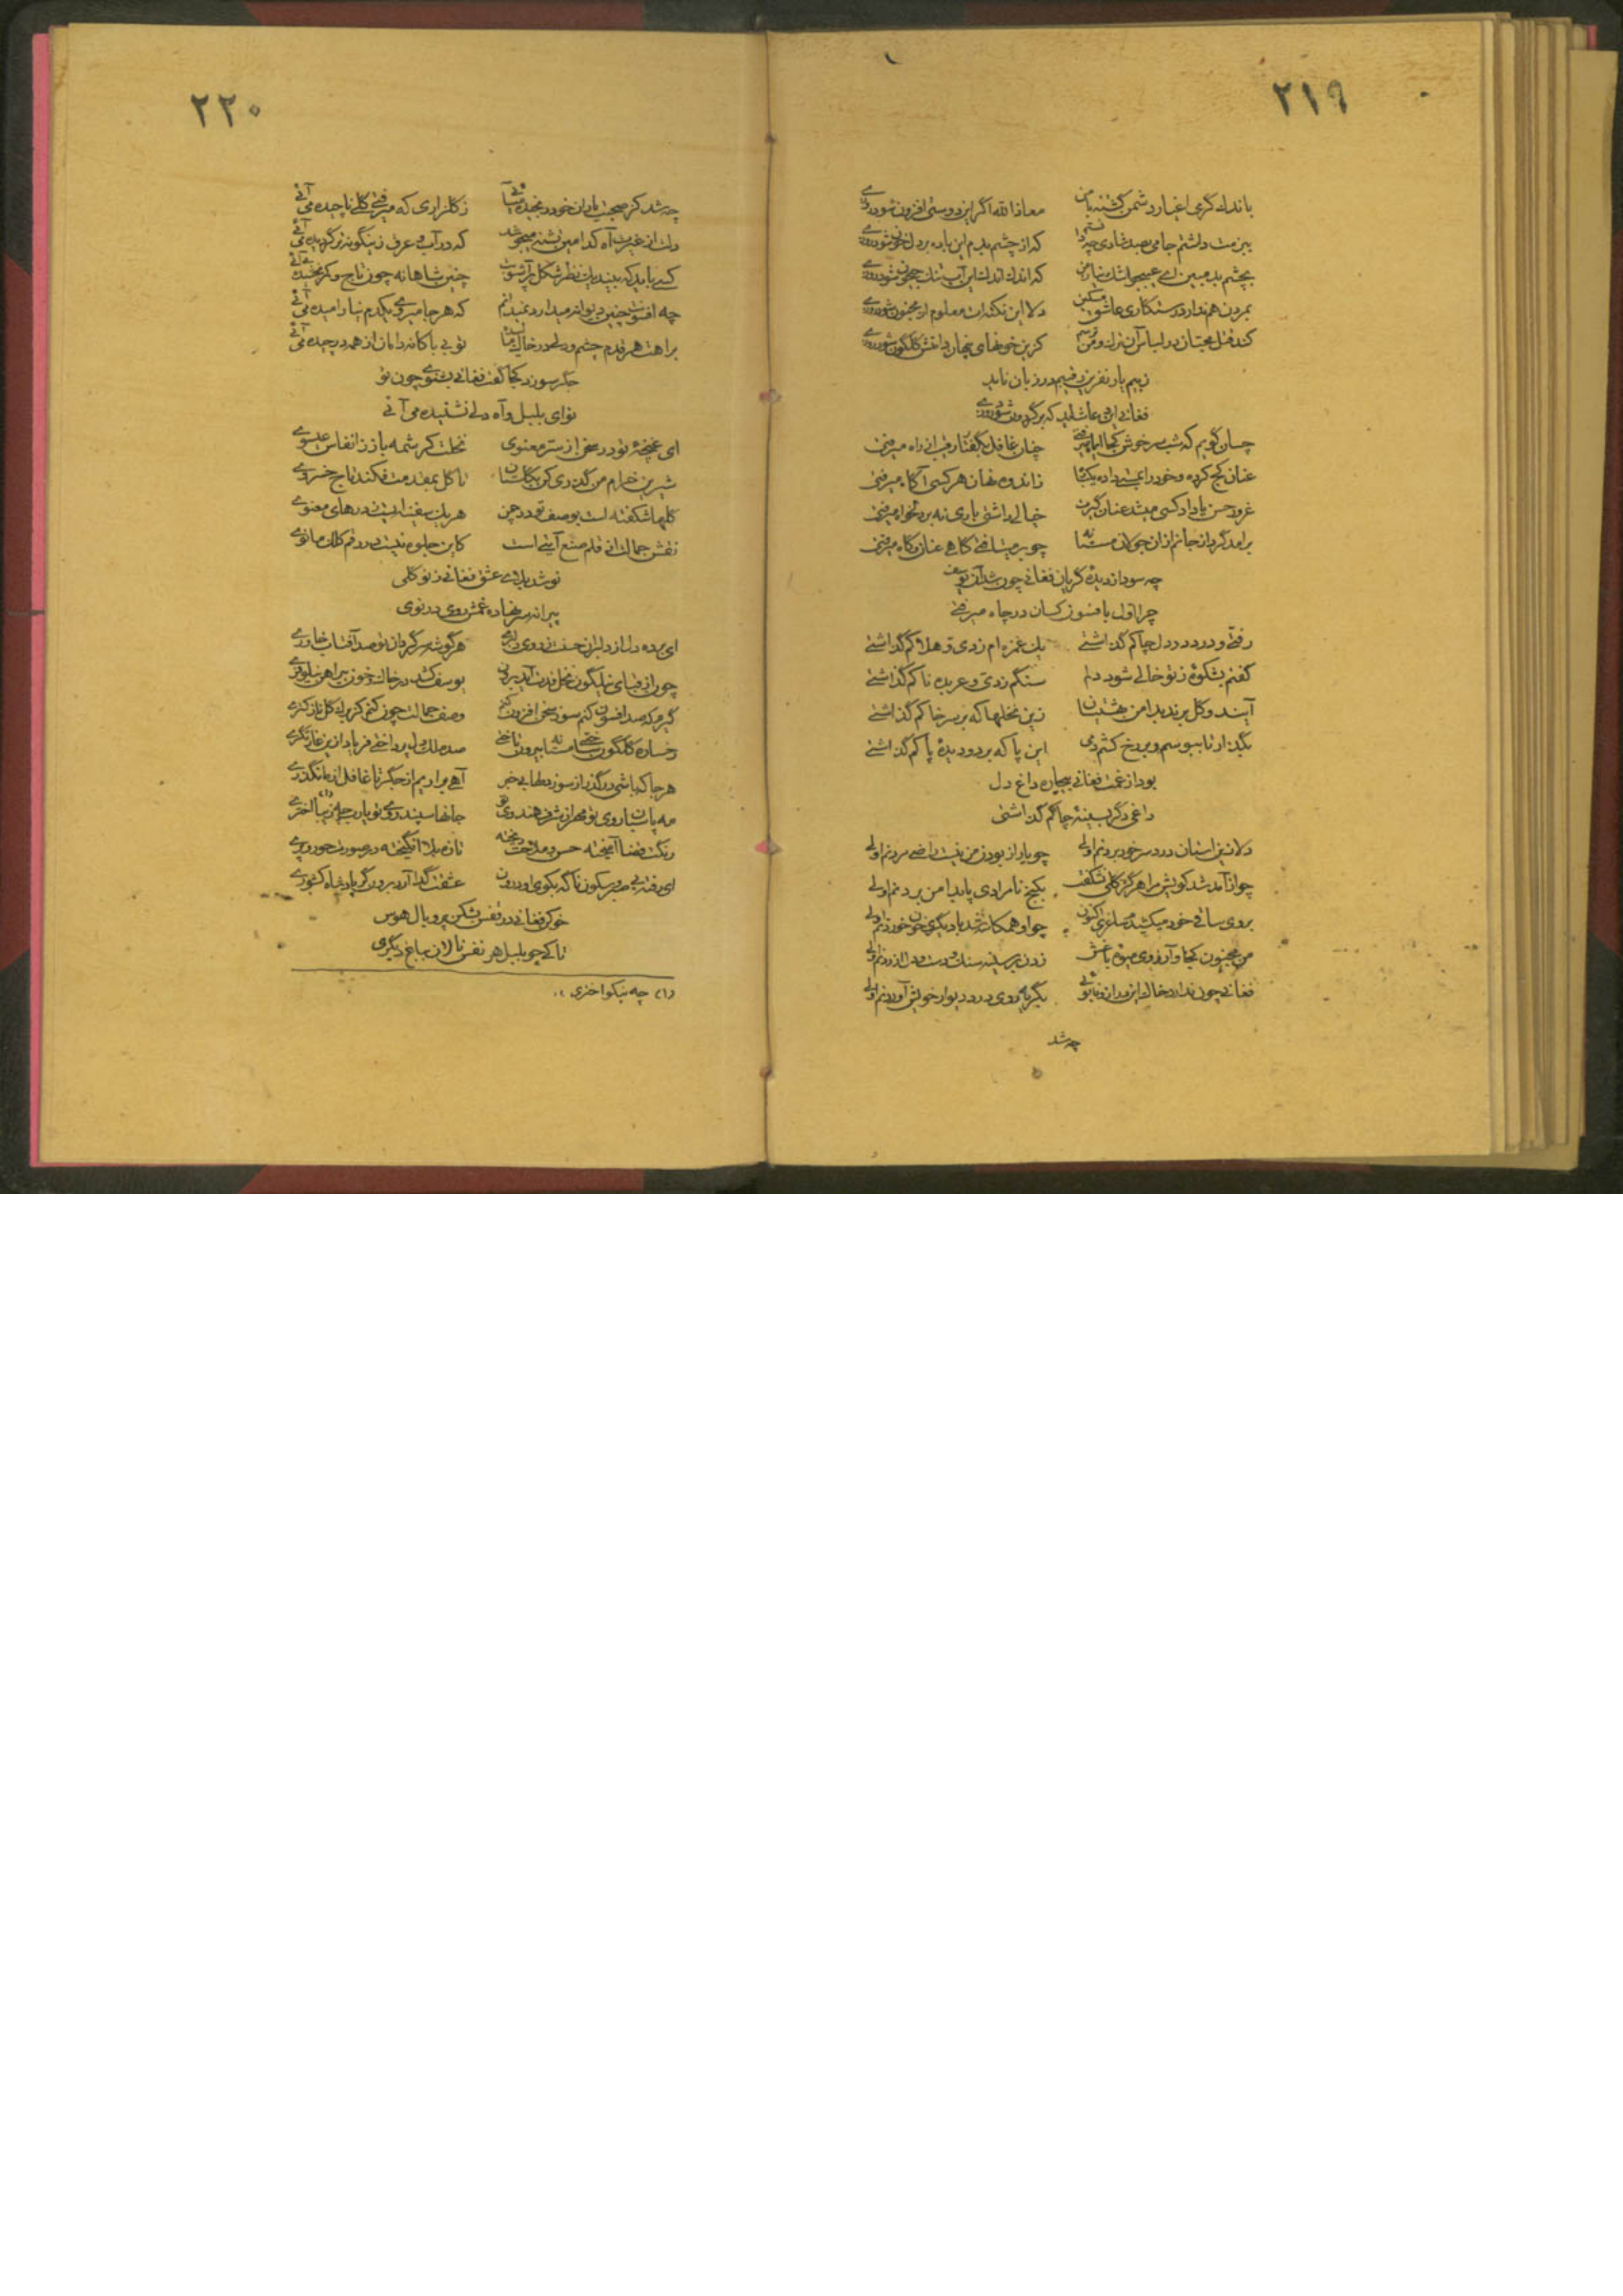 ۲۱۹
باندك گرمی اغیار دشمن گشته با من معاذالله اگر این دوستی افزون شود روزے
ببزمت داشتم جامی بصد شادی چه دانستم که از چشم بدم این باده بر دل خون شود روزے
بچشم بد مبین اے عیبجو اشك نیاز من که اندك اندك این آب تنك جیحون شود روزے
بمردن هم ندارد رستگاری عاشق مسکین دلا این نکته ات معلوم از مجنون شود روزے
کند قتل محبان در لباس آن ترك و من ترسم کزین خونهای پنهان دامنش گلگون شود روزے
ز بیم یار نفرین رقیبم در زبان ناید
فغانی این دعا شاید که بر گردون شود روزے
چسان گویم که شب سرخوش کجا ای ماه میرفتی چنان غافل بگفتار رقیب از راه میرفتی
عنان کج کرده و خود را بمستی داده یکتا زاندوه نهان هر کسی آگاه میرفتی
غرور حسن یا داد کسی میشد عنان گیرت خیالے داشتی یاری نه بر دلخواه میرفتی
برآمد گرد از جانم ازان جولان مستانه چو بر میتافتی گاهے عنان ناگاه میرفتی
چه سود از دیده گریان فغانی چون شد آن یوسف
چرا اول بافسون کسان در چاه میرفتی
رفتی و درد در دل چاکم گذاشتی یك غمزه ام زدی و هلاکم گذاشتی
گفتم بشکوهٔ ز تو خالے شود دلم سنگم زدی و عربده ناکم گذاشتی
آیند و گل برند بدامن بهشتیان زین نخلها که بر سر خاکم گذاشتی
بگذار تا ببوسم و بر رخ کشم دمی این پا که بر دو دیدهٔ پاکم گذاشتی
بود از غمت فغانی بیچاره داغ دل
داغی دگر بسینهٔ چاکم گذاشتی
دلا زین استان درد سر خود بردنم اولی چو یار از بودن من نیست راضی مردنم اولی
چو از آمد شد کویش مرا هرگز گلی نشکفت بکنج نامرادی پا بدامن بردنم اولی
بروی ساقی خود میکشیدم ساغری اکنون چو او همکاسه شد با دیگری خون خوردنم اولی
من مجنون کجا و آرزوی میوهٔ باغش زدن بر سینه سنك و دست و دل آزردنم اولی
فغانی چون ندارد خاك این در از وفا بوئی بگریه روی در دیوار خویش آوردنم اولی
چه شد
۲۲۰
چه شد کز صحبت یاران خود رنجیده می آئی ز گلزاری که میرفتی گلی ناچیده می آئی
دلت از غیرت آه کدامین تشنه میجوشد که در آب و عرق زینگونه تر گردیده می آئی
کسے باید که بیند یك نظر شکل پر آشوبت چنین شاهانه چون تاج و کمر بخشیده می آئی
چه افسونت چنین دیوانه میدارد نمیدانم که هر جا میروے یکدم نیارامیده می آئی
براهت هر قدم چشم و دلے در خاك می‌افتد تو بی باکانه دامان از همه در چیده می آئی
جگر سوزد کجا گفت فغانی بشنوے چون تو
نوای بلبل و آه دلے نشنیده می آئی
ای غنچهٔ تو در سخن از سر معنوی نخلت کرشمه باز ز انفاس عیسوے
شیرین خرام من گذری کن بگلستان تا گل بمقدمت فکند تاج خسروے
گلها شکفته است بوصف تو در چمن هر یك سفینه ایست ز درهای معنوے
نقش جمالت از قلم صنع آیتی است کاین جلوه نیست در رقم کلك مانوے
نوشد بلاے عشق فغانی ز نو گلی
پیرانه سر نهاده غمش روی در نوی
ای برده دل از دلبران حسنت ز روی دلبری هر گوشه سر گردان تو صد آفتاب خاورے
چون از قبای نیلگون نخل قدت آید برون یوسف کشد در خاك و خون پیراهن نیلوفرے
گیرم که صد افسون کنم سوز سخن افزون کنم وصف جمالت چون کنم کز برك گل نازکترے
رخساره گلگون ساختی مستانه بیرون تاختی صد ملك دل پرداختی فریاد ازین غارتگرے
هر جا که باشی در گذر از سوز دلها بی خبر آهے براریم از جگر تا غافل از ما نگذرے
مه پاسبان روی تو مهر از شرف هندوی تو جانها سپند روے تو یارب چه زیبا اخترے (۱)
رنگت فضا آمیخته حسن و ملاحت ریخته تازه بلا انگیخته در صورت حور و پرے
ای رفته بی صبر و سکون ناگه بکوی او درون عشقت گدا آرد برون گر پادشاه کشورے
خو کن فغانی در قفس بشکن پر و بال هوس
تا کے چو بلبل هر نفس نالان بباغ دیگری
(۱) چه نیکو اختری ،،